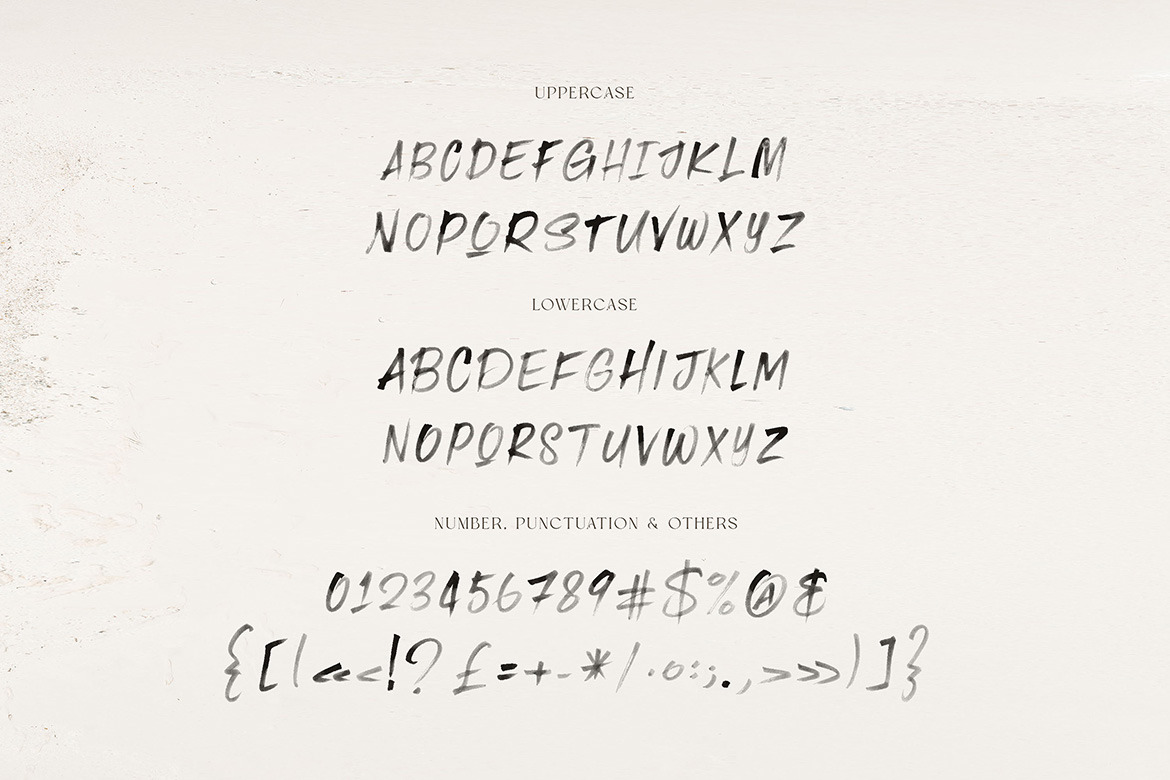 UPPERCASE
ABCDEFGHIJKLM
NOPQRSTUVWXYZ
LOWERCASE
ABCDEFGHIJKLM
NOPQRSTUVWXYZ
NUMBER, PUNCTUATION & OTHERS
0123456789#$%@&
{[(«<!?£=+-*/·°:;.,>»)]}